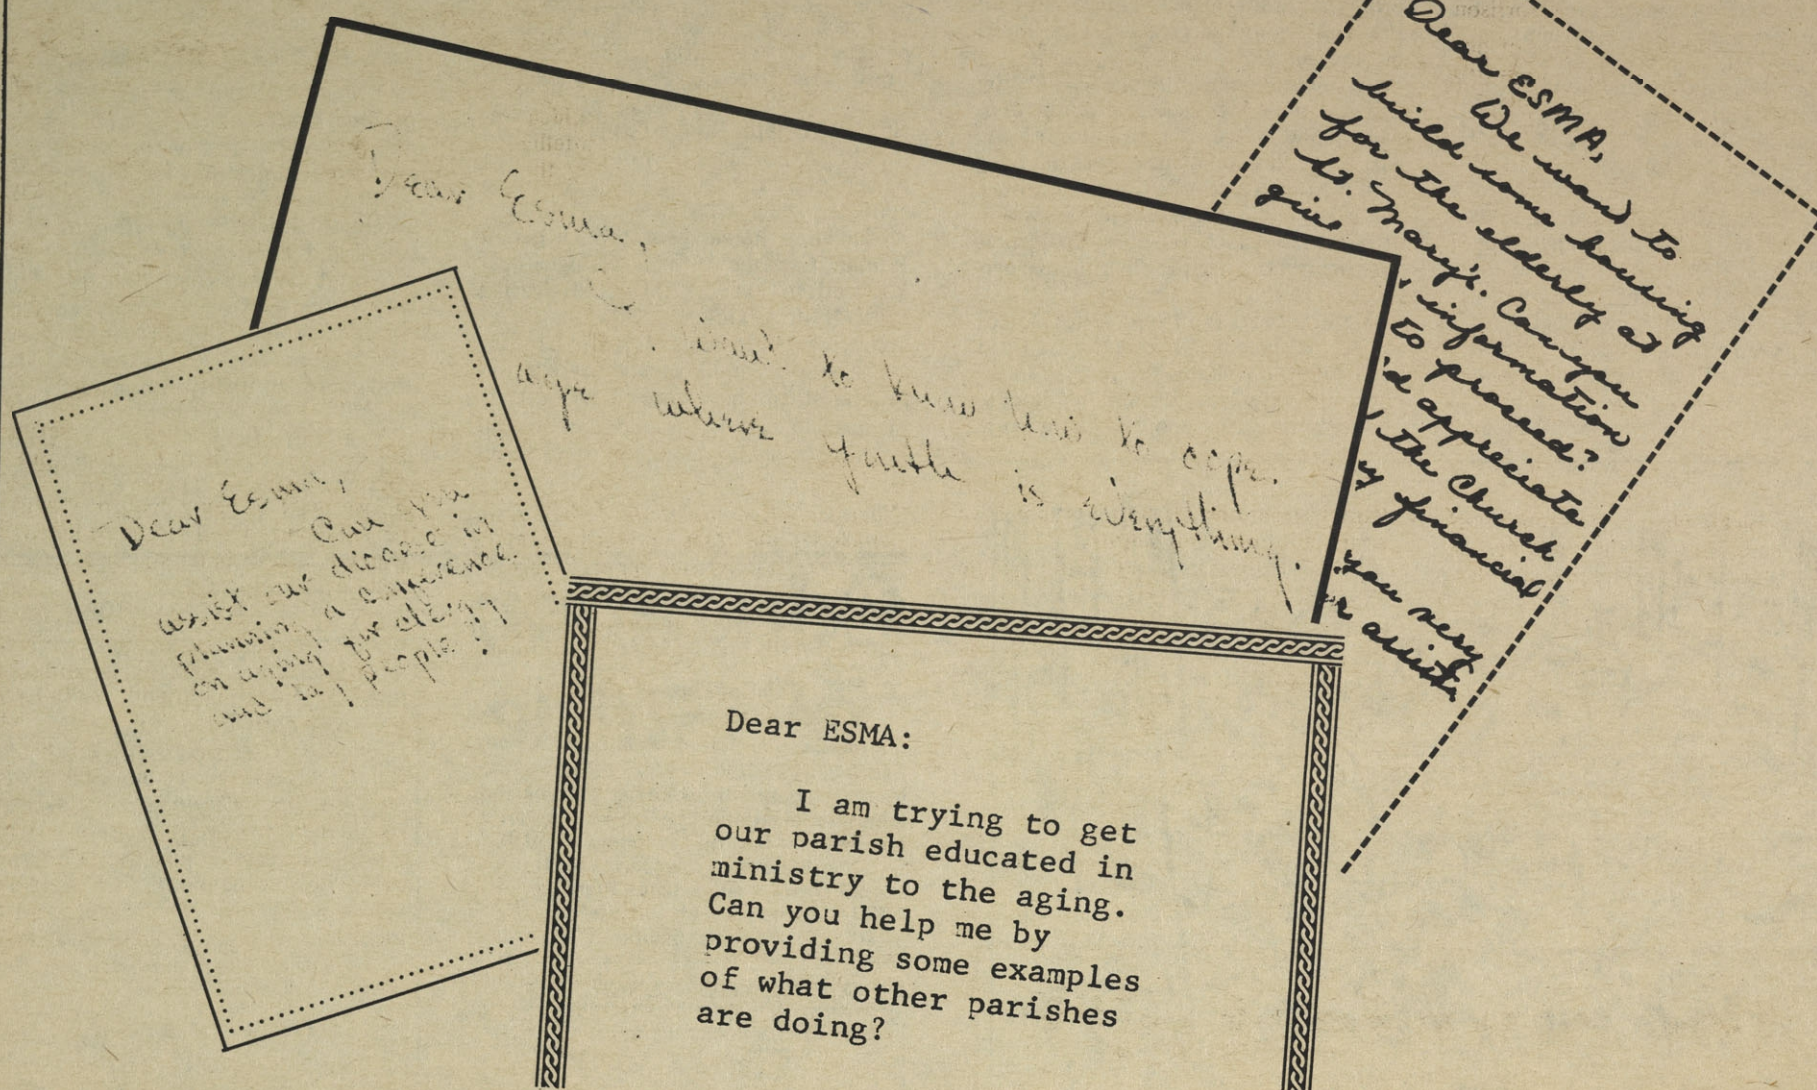 Dear Esma,
want to know how to cope.
age where youth is everything.
Dear ESMA,
We want to
build some housing
for the elderly at
St. Mary's. Can you
give information
to proceed?
appreciate
the Church
financial
you very
Dear Esma,
Can you
assist our diocese in
planning a conference
on aging for clergy
and lay people?
Dear ESMA:
I am trying to get
our parish educated in
ministry to the aging.
Can you help me by
providing some examples
of what other parishes
are doing?